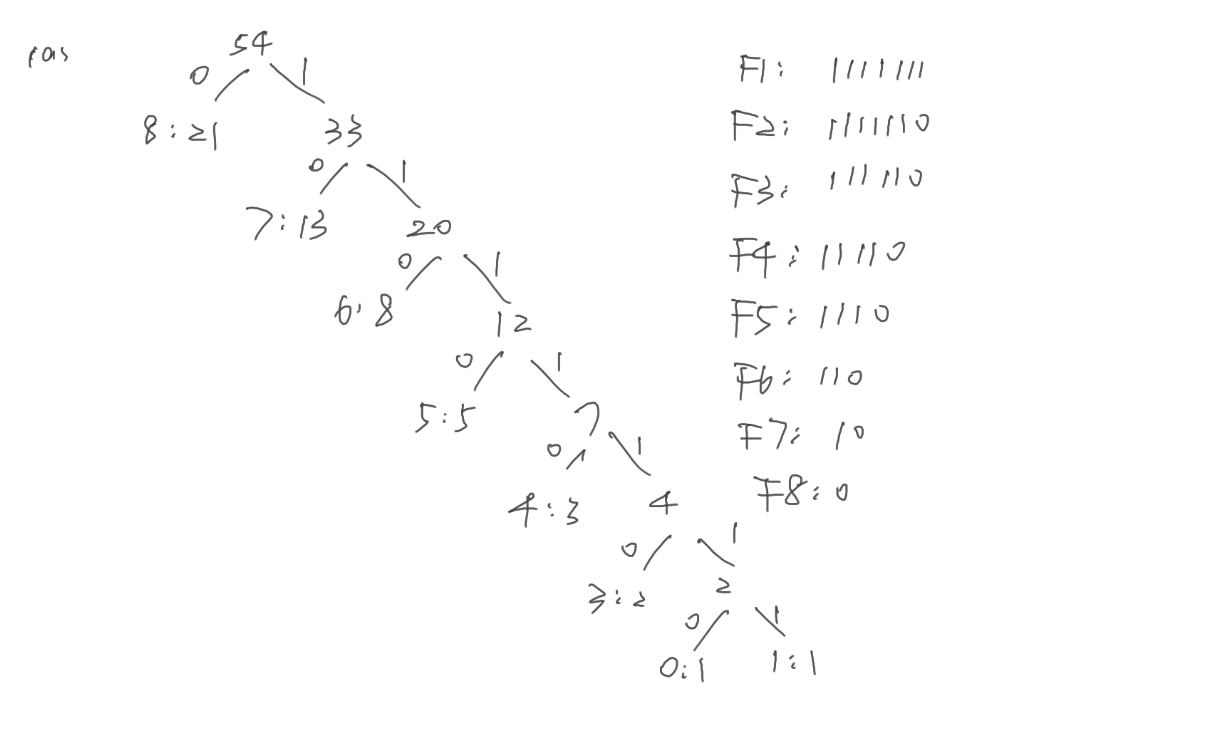 54
0 1
8:21 33
0 1
7:13 20
0 1
6:8 12
0 1
5:5 7
0 1
4:3 4
0 1
3:2 2
0 1
0:1 1:1
F1: 1111111
F2: 1111110
F3: 111110
F4: 11110
F5: 1110
F6: 110
F7: 10
F8: 0